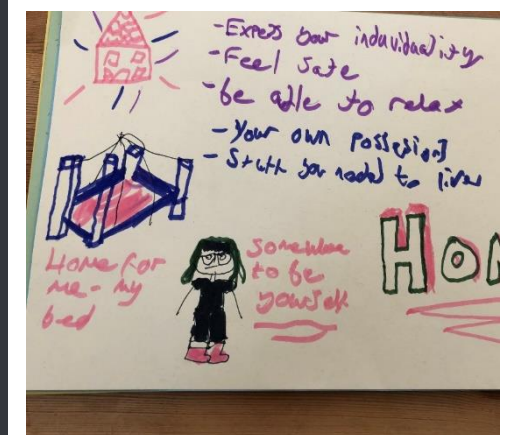 -Expess your induviduality
-Feel safe
-be able to relax
-Your own possesions
-Stuff you need to live
Home for
me - my
bed
Somewhere
to be
yourself
Hom